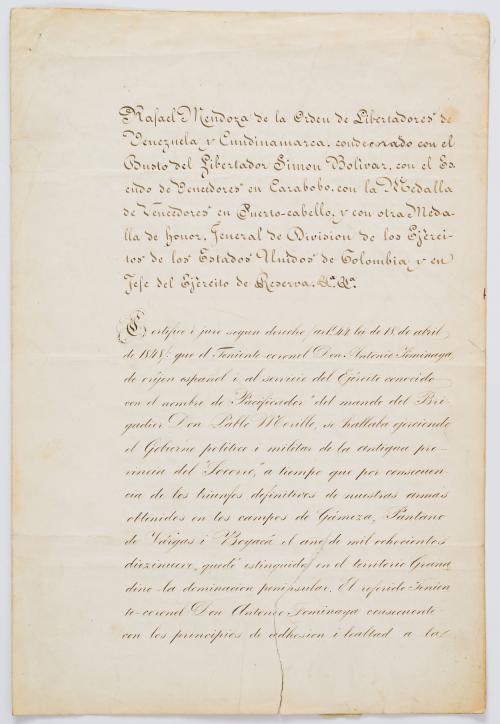 Rafael Mendoza de la Orden de Libertadores de
Venezuela y Cundinamarca, condecorado con el
Busto del Libertador Simon Bolivar, con el Es
cudo de Vencedores en Carabobo, con la Medalla
de Vencedores en Puerto-cabello, y con otra Meda-
lla de honor, Jeneral de Division de los Ejérci-
tos de los Estados Unidos de Colombia y en
Jefe del Ejército de Reserva. &ª. &ª.
Certifico i juro segun derecho (art. 44 lei de 18 de abril
de 1848): que el Teniente-coronel Don Antonio Fominaya,
de oríjen español i al servicio del Ejército conocido
con el nombre de "Pacificador" del mando del Bri-
gadier Don Pablo Morillo, se hallaba ejerciendo
el Gobierno político i militar de la antigua pro-
vincia del "Socorro," a tiempo que por consecuen-
cia de los triunfos definitivos de nuestras armas
obtenidos en los campos de Gámeza, Pantano
de Várgas i Boyacá el año de mil ochocientos
diezinueve, quedó estinguida en el territorio Grana
dino la dominacion peninsular. El referido Tenien
te-coronel Don Antonio Fominaya consecuente
con los principios de adhesion i lealtad a la